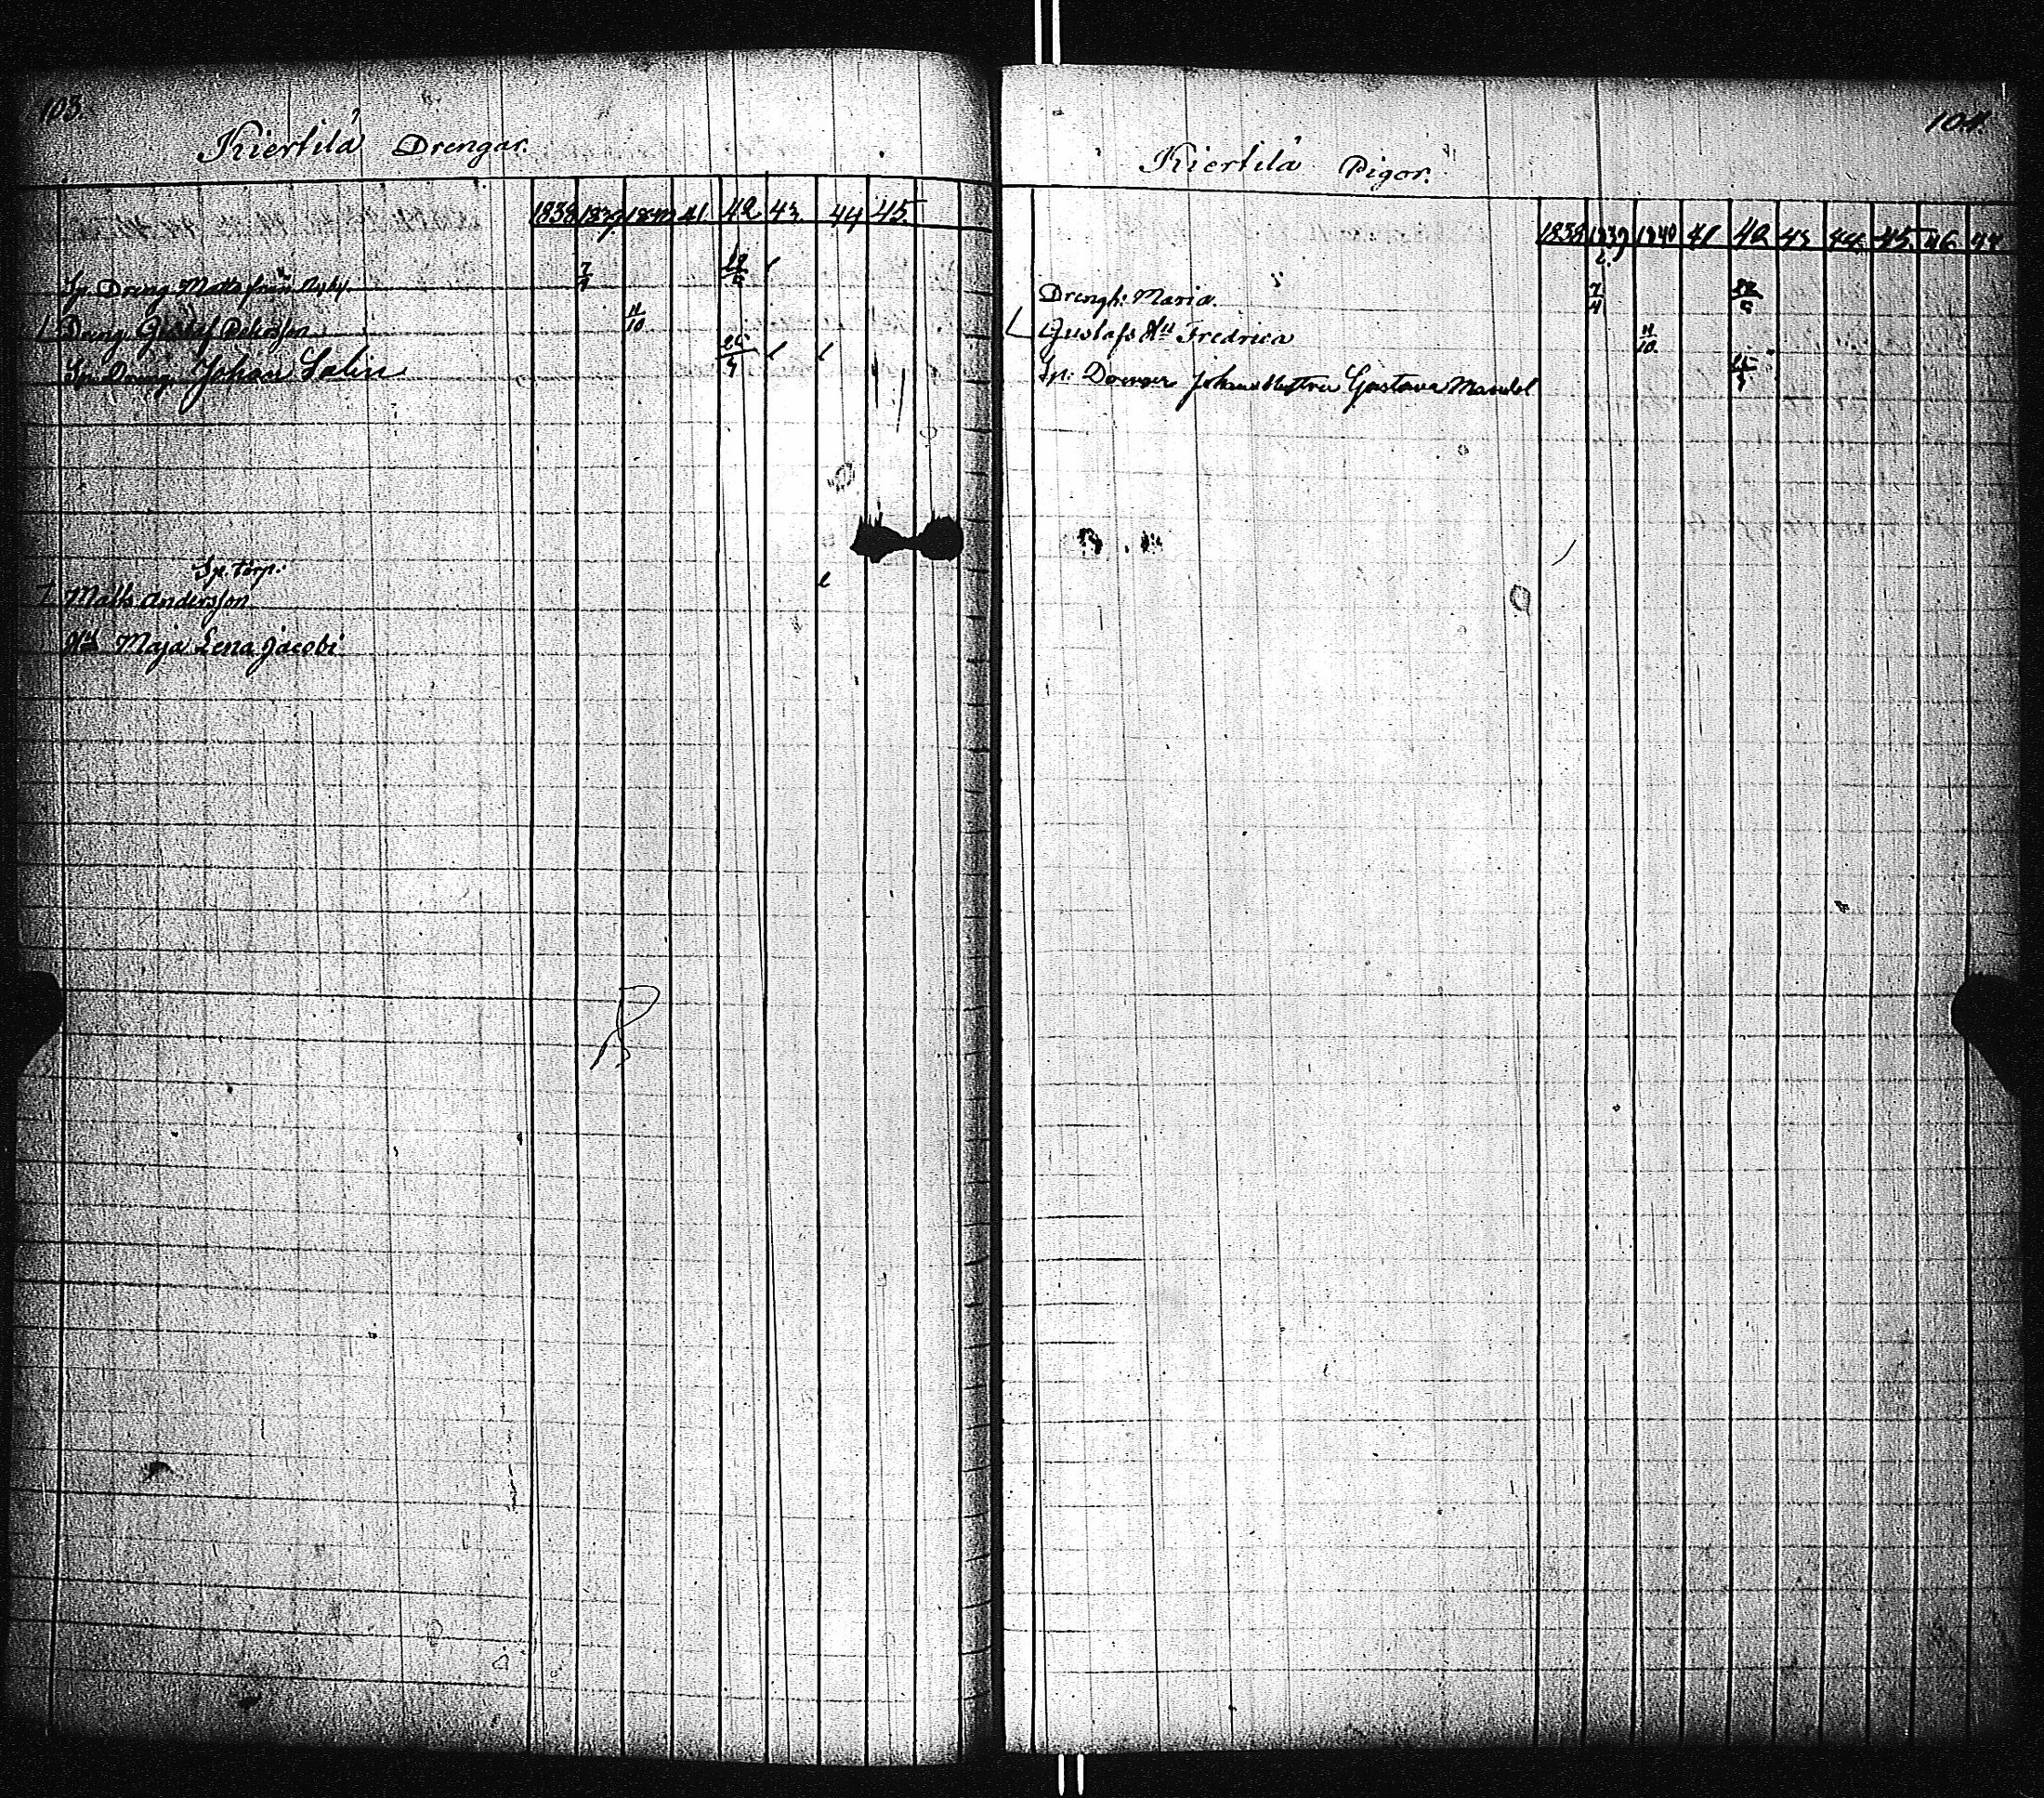 103.
Kiertilä Drengar.
1838 1839 1840 41. 42 43. 44 45.
Sp. Dreng Matts från Nyby. 7/4 l
Dreng Gustaf Petersson 11/10
Sp. Dreng. Johan Salin l l
Sp. torp.
Matts Andersson l
Maja Lena Jacobi
104.
Kiertilä Pigor.
1838 1839 1840 41 42 43 44 45 46 47
Drengh: Maria. 7/4
Gustafs Hu Fredrica 11/10
Sp: Johans Hustru Gustava Mandel